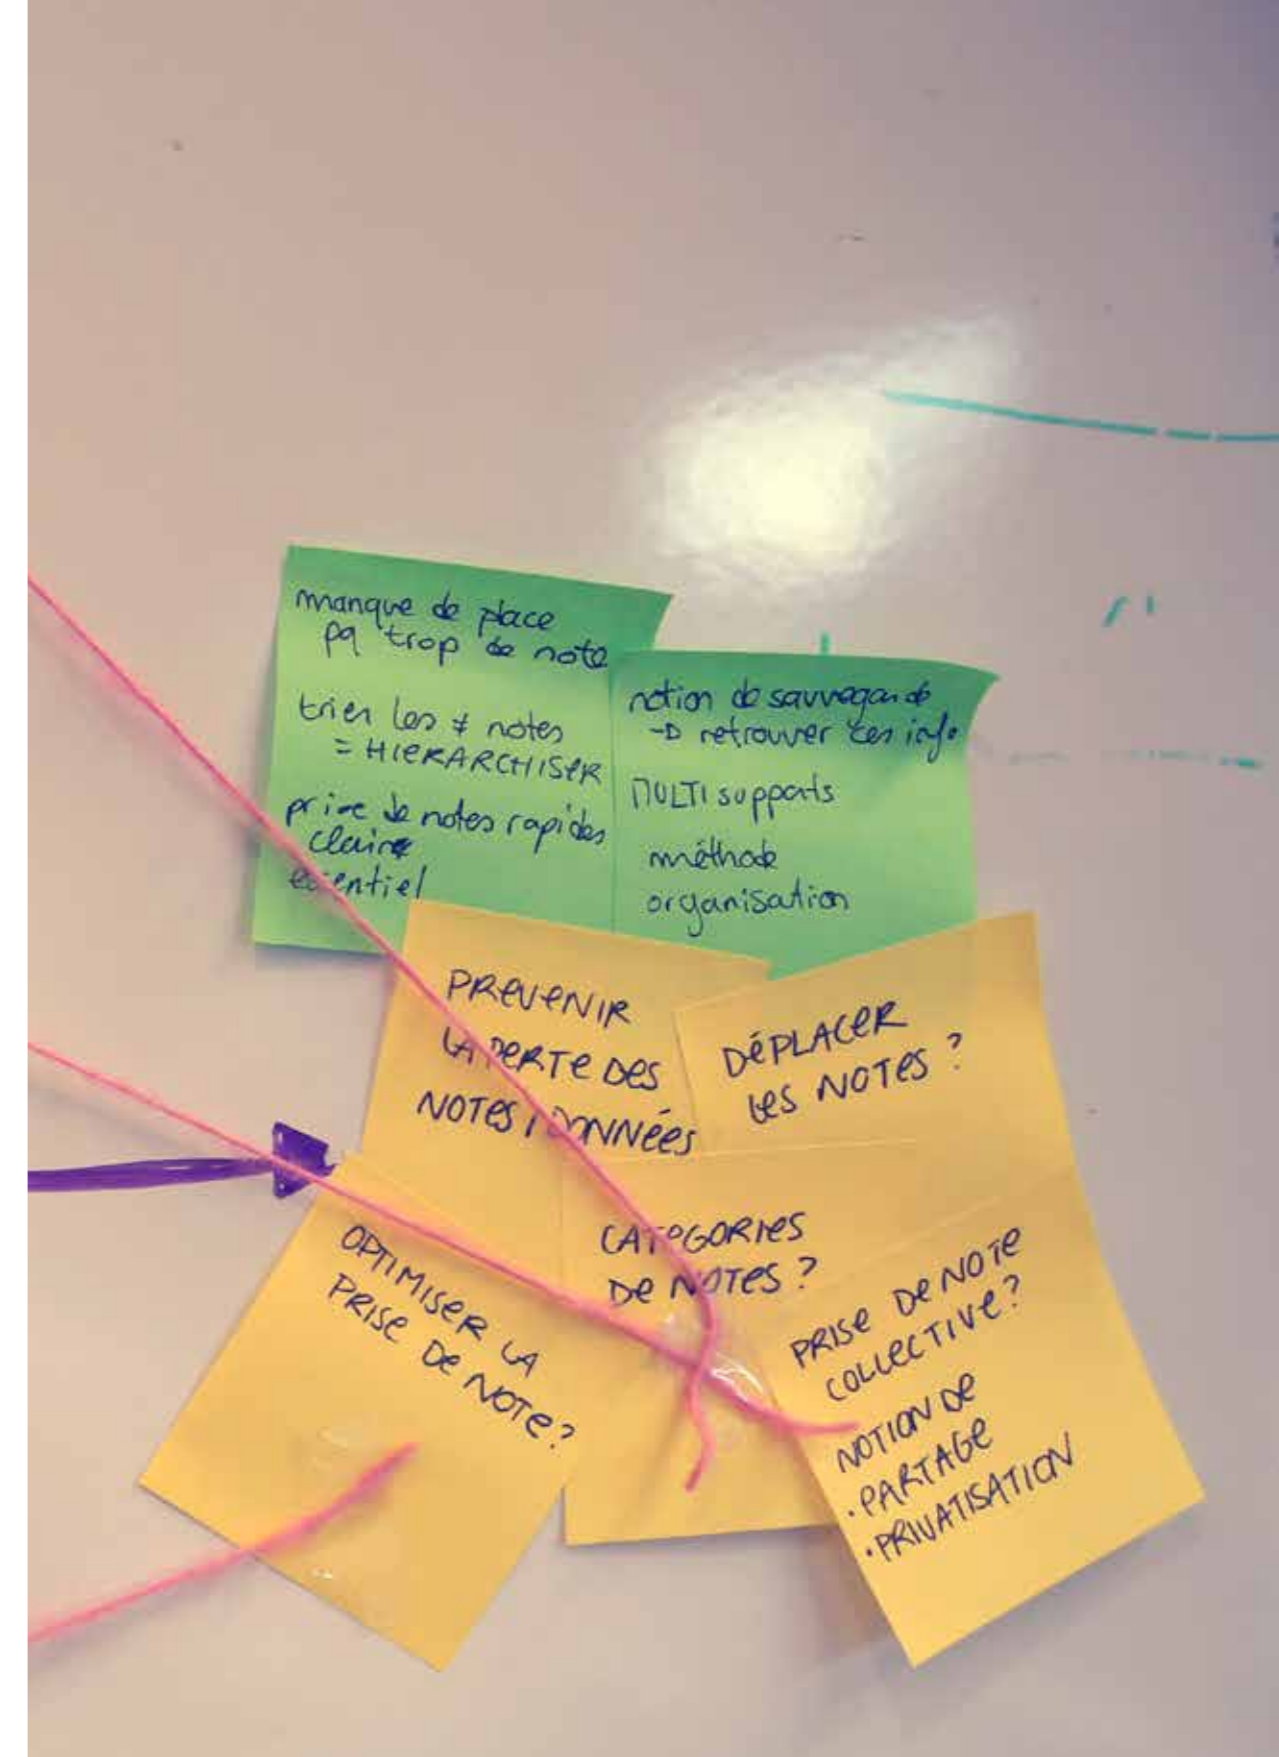 manque de place
pq trop de note
trier les ≠ notes
= HIERARCHISER
prise de notes rapides
claire
essentiel
notion de sauvegarde
→ retrouver ces info
MULTI supports
méthode
organisation
PREVENIR
LA PERTE DES
NOTES / DONNÉES
DÉPLACER
LES NOTES ?
OPTIMISER LA
PRISE DE NOTE ?
CATEGORIES
DE NOTES ?
PRISE DE NOTE
COLLECTIVE ?
NOTION DE
• PARTAGE
• PRIVATISATION